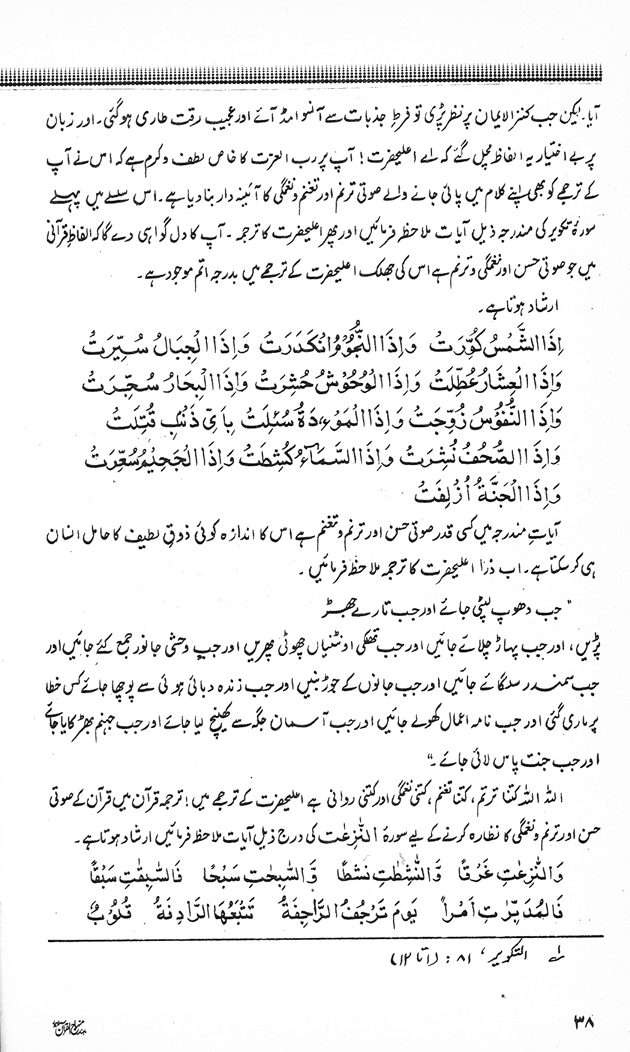 آیا۔ لیکن جب کنز الایمان پر نظر پڑی تو فرطِ جذبات سے آنسو امڈ آئے اور عجیب رقت طاری ہو گئی۔ اور زبان
پر بے اختیار یہ الفاظ مچل گئے کہ اے اعلیحضرت! آپ پر رب العزت کا خاص لطف و کرم ہے کہ اس نے آپ
کے ترجمے کو بھی اپنے کلام میں پائی جانے والے صوتی ترنم اور تغنم و نغمگی کا آئینہ دار بنا دیا ہے۔ اس سلسلے میں پہلے
سورۂ تکویر کی مندرجہ ذیل آیات ملاحظہ فرمائیں اور پھر اعلیحضرت کا ترجمہ۔ آپ کا دل گواہی دے گا کہ الفاظِ قرآنی
میں جو صوتی حسن اور نغمگی و ترنم ہے اس کی جھلک اعلیحضرت کے ترجمے میں بدرجہ اتم موجود ہے۔
ارشاد ہوتا ہے۔
اِذَا الشَّمْسُ كُوِّرَتْ وَاِذَا النُّجُوْمُ انْكَدَرَتْ وَاِذَا الْجِبَالُ سُيِّرَتْ
وَاِذَا الْعِشَارُ عُطِّلَتْ وَاِذَا الْوُحُوْشُ حُشِرَتْ وَاِذَا الْبِحَارُ سُجِّرَتْ
وَاِذَا النُّفُوْسُ زُوِّجَتْ وَاِذَا الْمَوْءٗدَةُ سُئِلَتْ بِاَيِّ ذَنْۢبٍ قُتِلَتْ
وَاِذَا الصُّحُفُ نُشِرَتْ وَاِذَا السَّمَآءُ كُشِطَتْ وَاِذَا الْجَحِيْمُ سُعِّرَتْ
وَاِذَا الْجَنَّةُ اُزْلِفَتْ
آیاتِ مندرجہ میں کسی قدر صوتی حسن اور ترنم و تغنم ہے اس کا اندازہ کوئی ذوقِ لطیف کا حامل انسان
ہی کر سکتا ہے۔ اب ذرا اعلیحضرت کا ترجمہ ملاحظہ فرمائیں۔
"جب دھوپ لپیٹی جائے اور جب تارے جھڑ
پڑیں، اور جب پہاڑ چلائے جائیں اور جب تھلکی اونٹنیاں چھوٹی پھریں اور جب وحشی جانور جمع کئے جائیں اور
جب سمندر سلگائے جائیں اور جب جانوں کے جوڑ بنیں اور جب زندہ دبائی ہوئی سے پوچھا جائے کس خطا
پر ماری گئی اور جب نامہ اعمال کھولے جائیں اور جب آسمان جگہ سے کھینچ لیا جائے اور جب جہنم بھڑکایا جائے
اور جب جنت پاس لائی جائے۔"
اللہ اللہ کتنا ترنم، کتنا تغنم، کتنی نغمگی اور کتنی روانی ہے اعلیحضرت کے ترجمے میں! ترجمہ قرآن میں قرآن کے صوتی
حسن اور ترنم و نغمگی کا نظارہ کرنے کے لیے سورۂ النّٰزِعٰت کی درج ذیل آیات ملاحظہ فرمائیں ارشاد ہوتا ہے۔
وَالنّٰزِعٰتِ غَرْقًا وَّالنّٰشِطٰتِ نَشْطًا وَّالسّٰبِحٰتِ سَبْحًا فَالسّٰبِقٰتِ سَبْقًا
فَالْمُدَبِّرٰتِ اَمْرًا يَوْمَ تَرْجُفُ الرَّاجِفَةُ تَتْبَعُهَا الرَّادِفَةُ قُلُوْبٌ
؎۱ التکویر، ۸۱: (۱ تا ۱۳)
۳۸